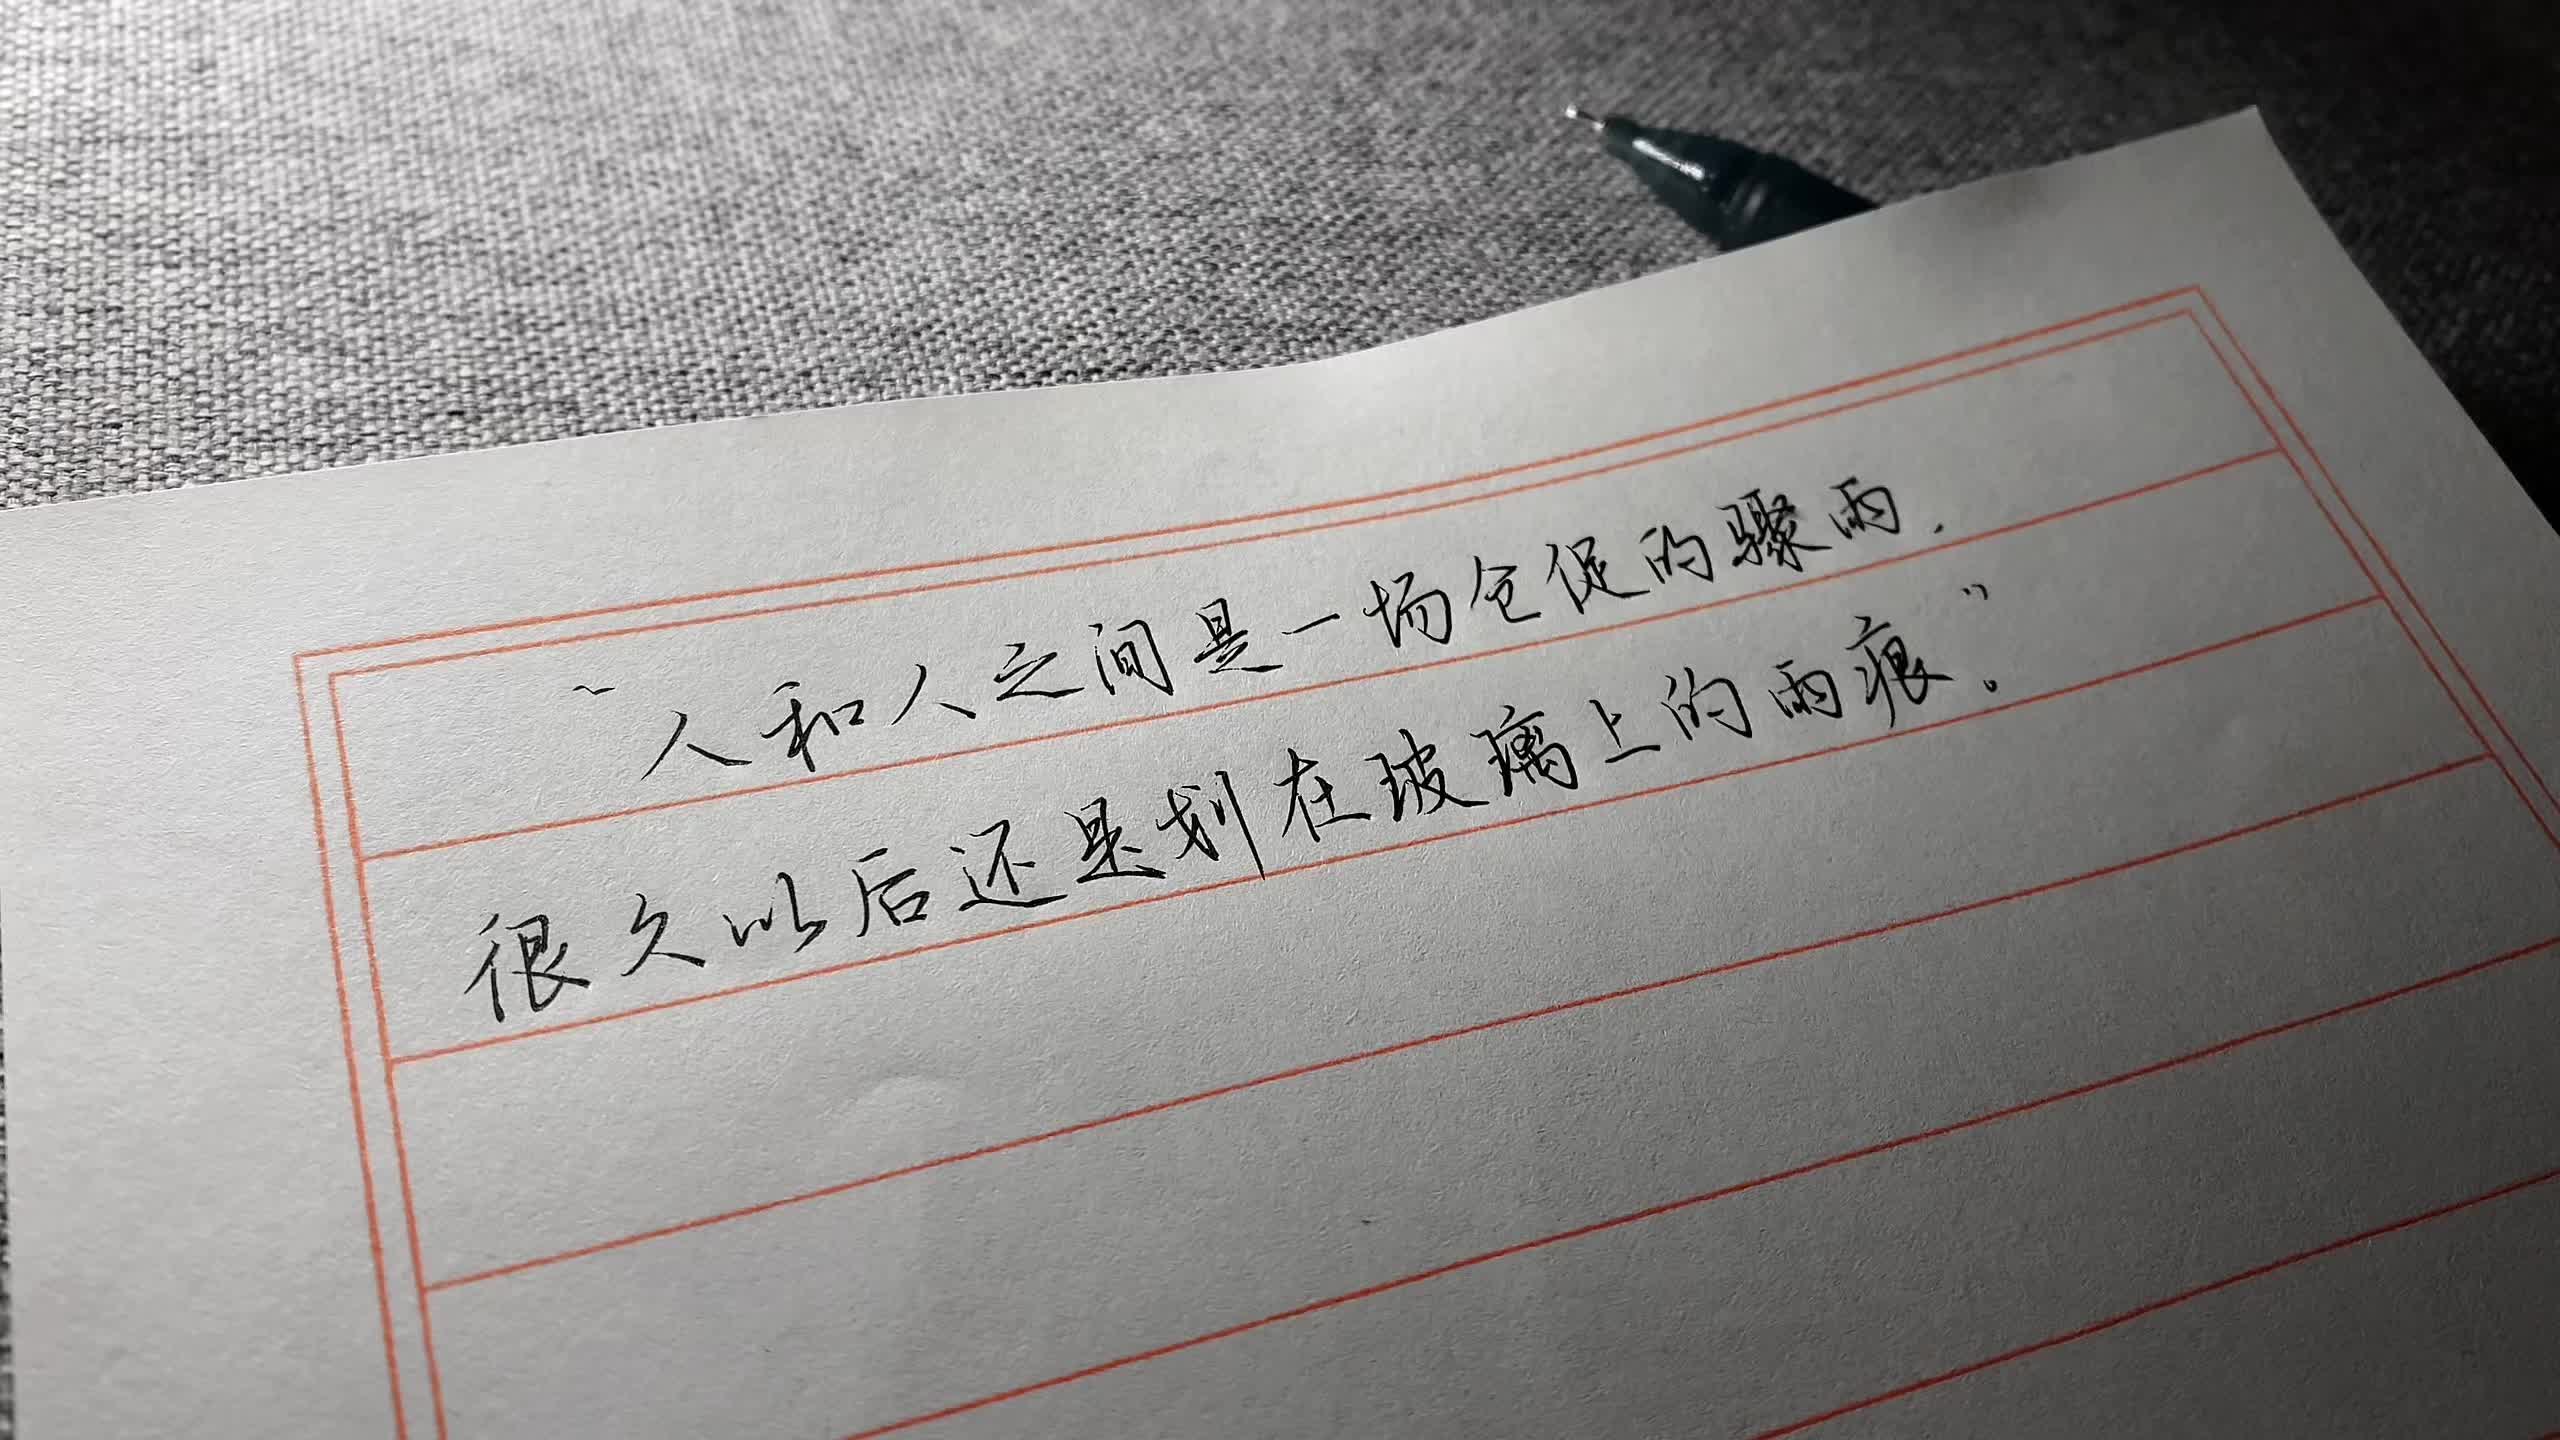 “人和人之间是一场仓促的骤雨，
很久以后还是划在玻璃上的雨痕。”